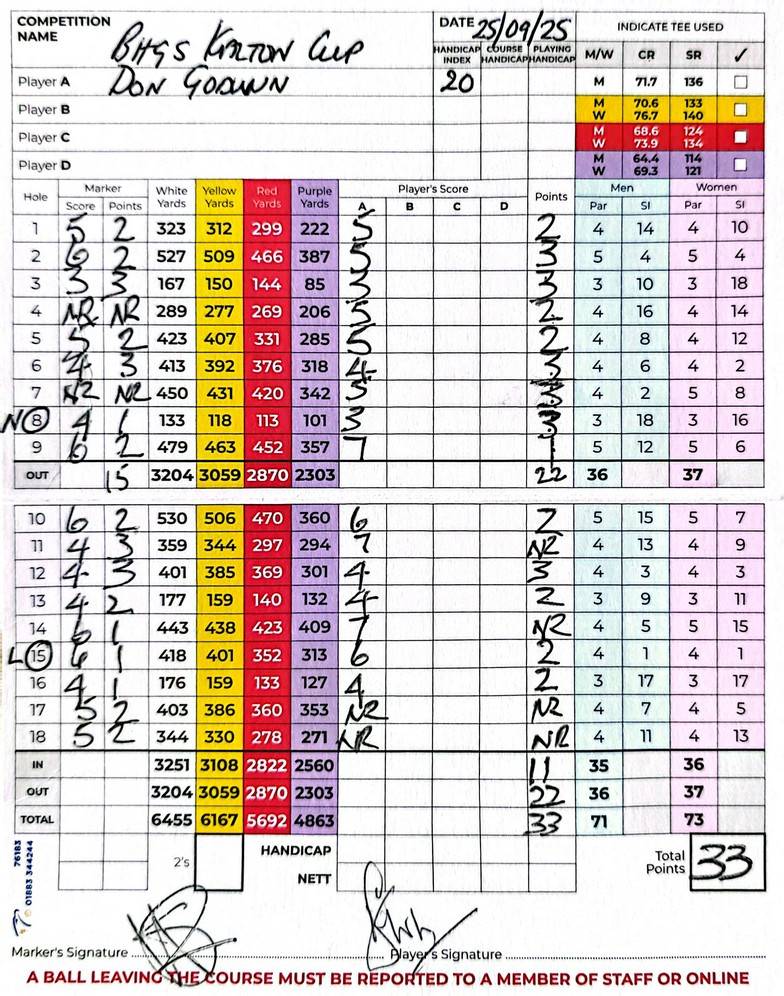 COMPETITION NAME BHGS KIRLTON CUP DATE 25/09/25 INDICATE TEE USED
HANDICAP INDEX COURSE HANDICAP PLAYING HANDICAP M/W CR SR ✓
Player A DON GODWIN 20 M 71.7 136
Player B M 70.6 133
W 76.7 140
Player C M 68.6 124
W 73.9 134
Player D M 64.4 114
W 69.3 121
Hole Marker White Yards Yellow Yards Red Yards Purple Yards Player's Score Points Men Women
Score Points A B C D Par SI Par SI
1 5 2 323 312 299 222 5 2 4 14 4 10
2 6 2 527 509 466 387 5 3 5 4 5 4
3 3 3 167 150 144 85 3 3 3 10 3 18
4 NR NR 289 277 269 206 5 2 4 16 4 14
5 5 2 423 407 331 285 5 2 4 8 4 12
6 4 3 413 392 376 318 4 3 4 6 4 2
7 NR NR 450 431 420 342 5 3 4 2 5 8
N 8 4 1 133 118 113 101 3 3 3 18 3 16
9 6 2 479 463 452 357 7 1 5 12 5 6
OUT 15 3204 3059 2870 2303 22 36 37
10 6 2 530 506 470 360 6 2 5 15 5 7
11 4 3 359 344 297 294 7 NR 4 13 4 9
12 4 3 401 385 369 301 4 3 4 3 4 3
13 4 2 177 159 140 132 4 2 3 9 3 11
14 6 1 443 438 423 409 7 NR 4 5 5 15
L 15 6 1 418 401 352 313 6 2 4 1 4 1
16 4 1 176 159 133 127 4 2 3 17 3 17
17 5 2 403 386 360 353 NR NR 4 7 4 5
18 5 2 344 330 278 271 NR NR 4 11 4 13
IN 3251 3108 2822 2560 11 35 36
OUT 3204 3059 2870 2303 22 36 37
TOTAL 6455 6167 5692 4863 33 71 73
76183
01883 344244
2's HANDICAP Total Points 33
NETT
Marker's Signature Player's Signature
A BALL LEAVING THE COURSE MUST BE REPORTED TO A MEMBER OF STAFF OR ONLINE